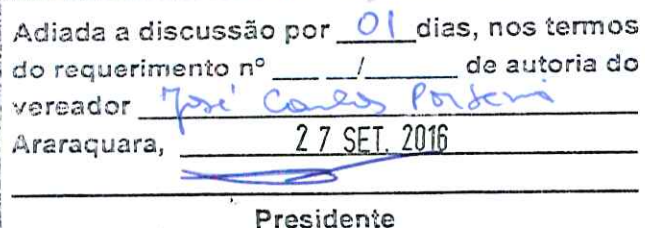 Adiada a discussão por 01 dias, nos termos
do requerimento nº ___ __/______ de autoria do
vereador José Carlos Porsani
Araraquara, 27 SET. 2016
Presidente